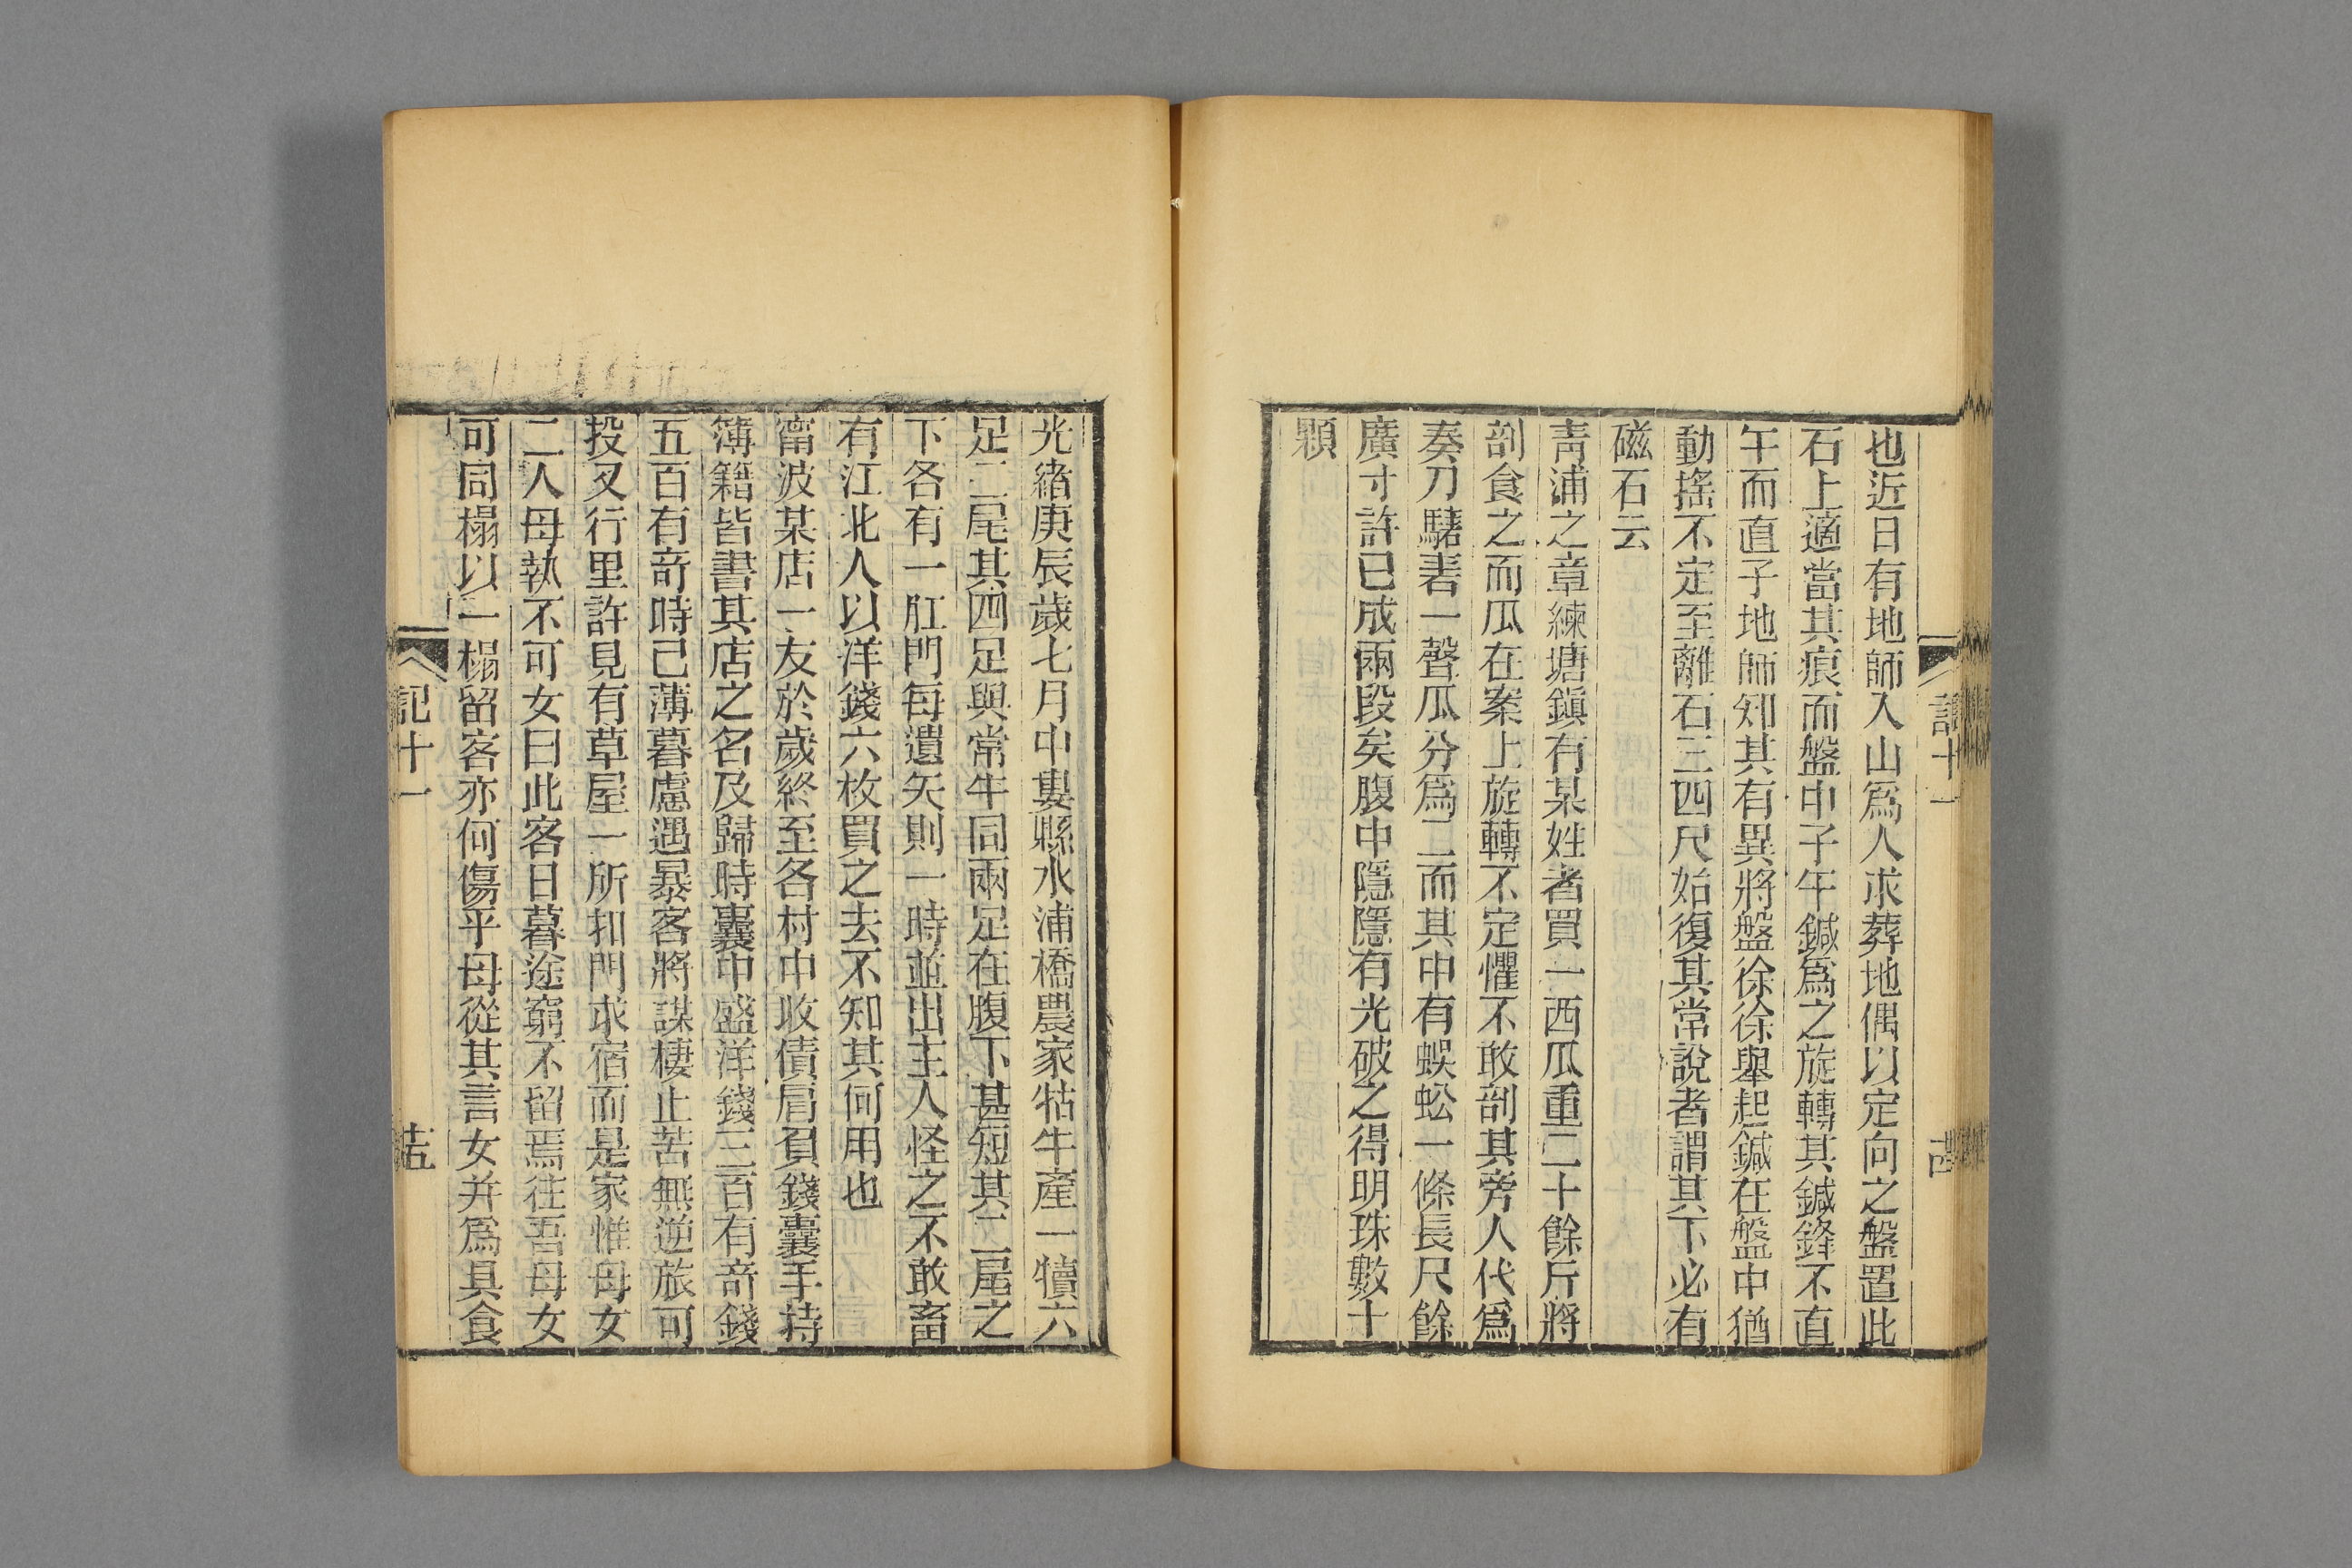 記十一
十四
也近日有地師入山爲人求葬地偶以定向之盤置此
石上適當其痕而盤中子午鍼爲之旋轉其鍼鋒不直
午而直子地師知其有異將盤徐徐舉起鍼在盤中猶
動搖不定至離石三四尺始復其常說者謂其下必有
磁石云
靑浦之章練塘鎭有某姓者買一西瓜重二十餘斤將
剖食之而瓜在案上旋轉不定懼不敢剖其旁人代爲
奏刀騞砉一聲瓜分爲二而其中有蜈蚣一條長尺餘
廣寸許已成兩段矣腹中隱隱有光破之得明珠數十
顆
光緒庚辰歲七月中婁縣水浦橋農家牯牛產一犢六
足二尾其四足與常牛同兩足在腹下甚短其二尾之
下各有一肛門每遺矢則一時並出主人怪之不敢畜
有江北人以洋錢六枚買之去不知其何用也
甯波某店一友於歲終至各村中收債肩負錢囊手持
簿籍皆書其店之名及歸時囊中盛洋錢三百有奇錢
五百有奇時已薄暮慮遇暴客將謀棲止苦無逆旅可
投又行里許見有草屋一所扣門求宿而是家惟母女
二人母執不可女曰此客日暮途窮不留焉往吾母女
可同榻以一榻留客亦何傷乎母從其言女并爲具食
記十一
十五